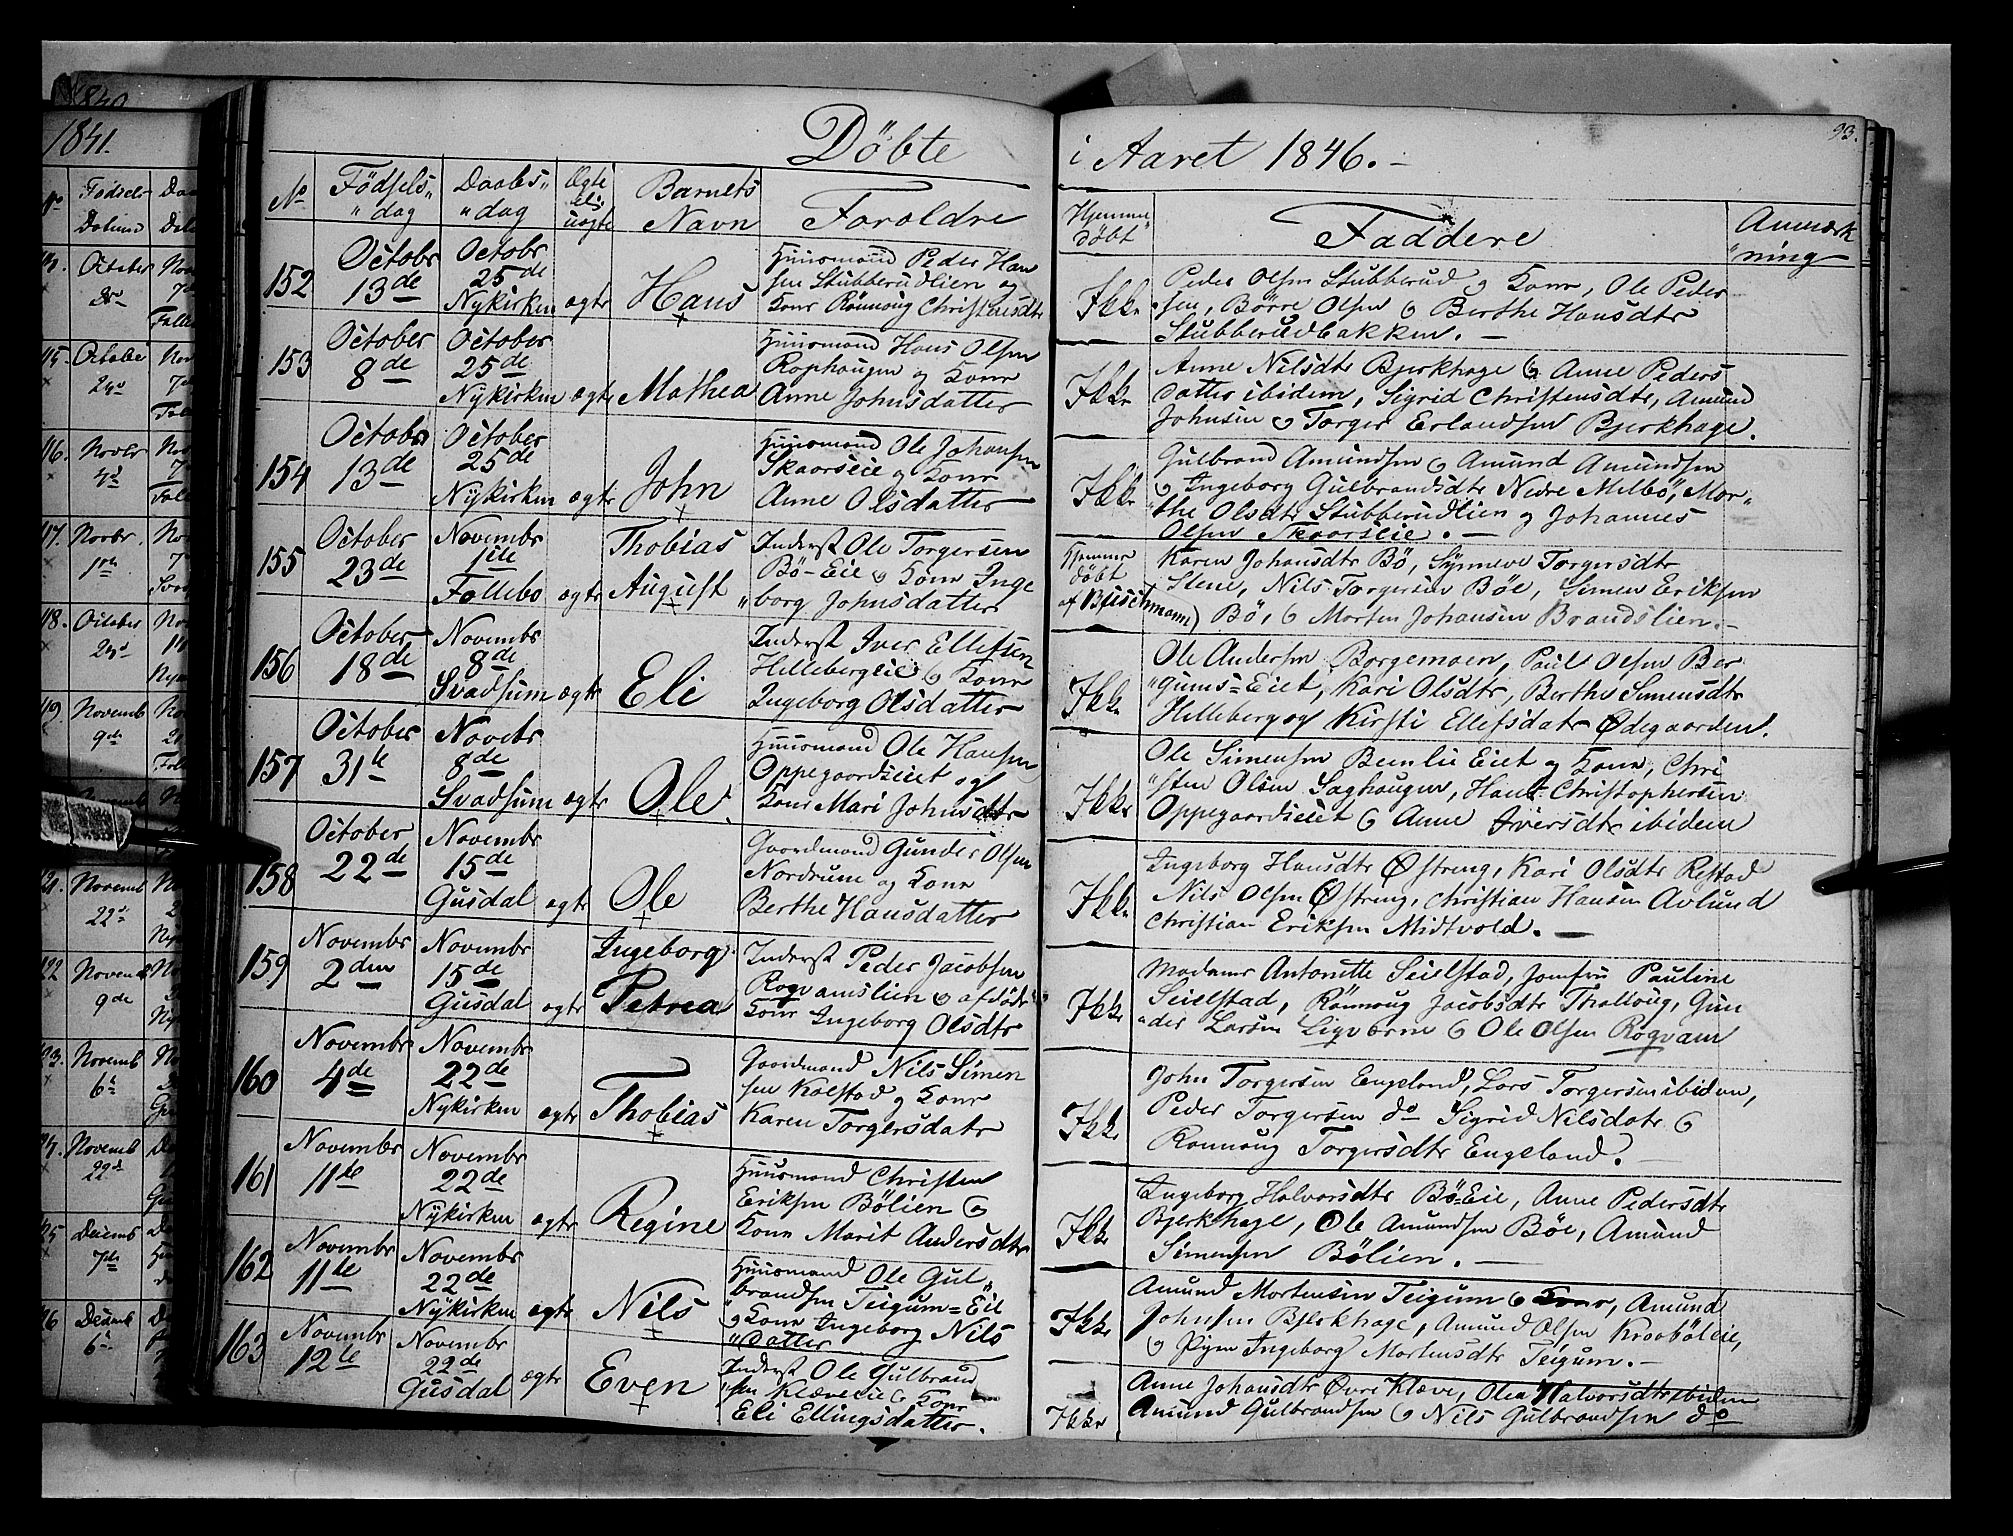 Döbte
i Aaret 1846.
93.
No
Födsels dag
Daabs dag
Ægte el. uægte
Barnets Navn
Forældre
Hjemme döbt
Faddere
Anmærkning
152
Octobr 13de
Octobr 25de Nykirken
ægte
Hans
Huusmand Peder Han
sen Stubberudlien og
Kone Rönnoug Christensdtr
Ikke
Peder Olsen Stubberud og Kone, Ole Peder
sen, Börre Olsen og Berthe Hansdtr
Stubberudbakken.
153
October 8de
October 25de Nykirken
ægte
Mathea
Huusmand Hans Olsen
Rophaugen og Kone
Anne Johnsdatter
Ikke
Anne Nilsdtr Bjerkhage og Anne Peders
datter ibidem, Sigrid Christensdtr, Amund
Johnsen og Torger Erlandsen Bjerkhage.
154
Octobr 13de
October 25de Nykirken
ægte
John
Huusmand Ole Johansen
Skaarseie og Kone
Anne Olsdatter
Ikke
Gulbrand Amundsen og Amund Amundsen
og Ingeborg Gulbrandsdtr Nedre Melbö, Mar
the Olsdtr Stubberudlien og Johannes
Olsen Skaarseie.
155
October 23de
Novembr 1ste Follebo
ægte
Thobias August
Inderst Ole Torgersen
Bö-Eie og Kone Inge
borg Johnsdatter
Hjemme döbt af Buschmann)
Karen Johansdtr Bö, Synneve Torgersdtr
Stene, Nils Torgersen Böe, Simen Eriksen
Bö, og Morten Johansen Brandslien.
156
October 18de
Novembr 8de Svadsum
ægte
Eli
Inderst Iver Ellefsen
Hillebergeie og Kone
Ingeborg Olsdatter
Ikke
Ole Andersen Borgemoen, Paul Olsen Ber
gums-Eiet, Kari Olsdtr, Berthe Simensdtr
Hilleberg og Kirsti Ellefsdatr Ödegaarden.
157
October 31te
Novebr 8de Svadsum
ægte
Ole
Huusmand Ole Hansen
Oppegaardseiet og
Kone Mari Johnsdtr
Ikke
Ole Simensen Bemlie Eiet og Kone, Chri
sten Olsen Saghaugen, Hans Christophersen
Oppegaardseiet og Anne Iversdtr ibidem
158
October 22de
Novembr 15de Gusdal
ægte
Ole
Gaardmand Gunder Olsen
Nordrum og Kone
Berthe Hansdatter
Ikke
Ingeborg Hansdtr Østreng, Kari Olsdtr Restad
Nils Olsen Østreng, Christian Hansen Avlund
Christian Eriksen Midtvold.
159
Novembr 2den
Novembr 15de Gusdal
ægte
Ingeborg Petrea
Inderst Peder Jacobsen
Rogvamslien og afdöde
Kone Ingeborg Olsdtr
Ikke
Madame Antonitte Seielstad, Jomfru Pauline
Seielstad, Rönnoug Jacobsdtr Thalloug, Gun
der Larsen Ligværne og Ole Olsen Rogvam
160
Novembr 4de
Novembr 22de Nykirken
ægte
Thobias
Gaardmand Nils Simen
sen Kalstad og Kone
Karen Torgersdatr
Ikke
John Torgersen Engeland, Lars Torgersen ibidem,
Peder Torgersen do Sigrid Nilsdatr og
Rannoug Torgersdtr Engeland.
161
Novembr 11te
Novembr 22de Nykirken
ægte
Regine
Huusmand Christen
Eriksen Bölien og
Kone Marit Andersdtr
Ikke
Ingeborg Halvorsdtr Bö-Eie, Anne Pedersdtr
Bjerkhage, Ole Amundsen Böe, Amund
Simensen Bölien.
162
Novembr 11te
Novembr 22de Nykirken
ægte
Nils
Huusmand Ole Gul
brandsen Teigum-Eie
og Kone Ingeborg Nils
datter
Ikke
Amund Mortensen Teigum og Kone, Amund
Johnsen Bjerkhage, Amund Olsen Kraaböleie,
og Pigen Ingeborg Mortensdtr Teigum.
163
Novembr 12te
Novembr 22de Gusdal
ægte
Even
Inderst Ole Gulbrand
sen Klæveeie og Kone
Eli Ellingsdatter.
Ikke
Anne Johansdtr Övre Klæve, Olea Halvorsdtr ibidem
Amund Gulbrandsen og Nils Gulbrandsen do
1841.
No
Födsels
Datum
October
October
Novbr
4de
Novbr.
October
Novemb
9de
Novemb
22
Novemb
9de
Novemb
6
Novemb
22de
Decemb
7de
Decemb
6